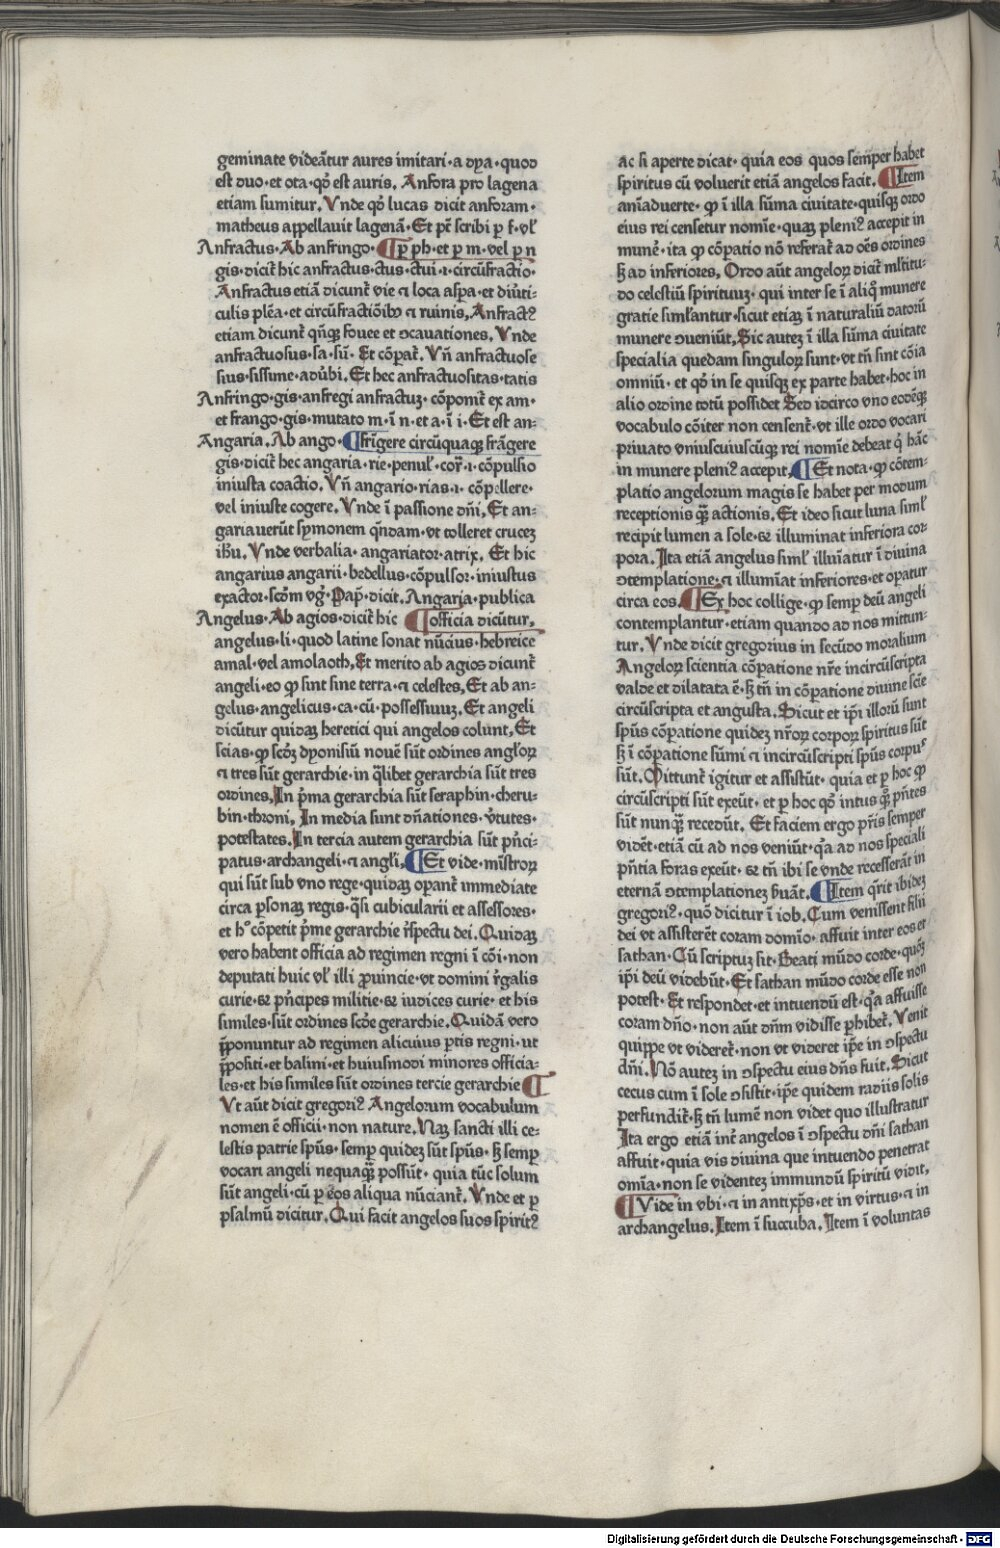 geminate videāntur aures imitari·a dya·quod
est duo·et ota·qď est auris. Anfora pro lagena
etiam sumitur. Vnde qď lucas dicit anforam·
matheus appellauit lagenā·Et pt̄ scribi p f·vl̓
Anfractus·Ab anfringo· ¶p ph·et p m·vel p n
gis·dicit̄ hic anfractus·ctus·ctui·i·circūfractio·
Anfractus etiā dicunt̄ vie ⁊ loca aspa·et diūti-
culis plēa·et circūfractiōib⁹ ⁊ ruinis. Anfract⁹
etiam dicunt̄ qn̄q; fouee et ↄcauationes. Vnde
anfractuosus·sa·sū. Et cōpat̄. Vn̄ anfractuose
sius·sissime·adūbi. Et hec anfractuositas·tatis
Anfringo·gis·anfregi anfractuz·cōponit̄ ex am·
et frango·gis·mutato m·ī n·et a·ī i·Et est an-
Angaria. Ab ango· ¶fr̄igere circūquaq; frāgere
gis·dicit̄ hec angaria·rie·penul̓·cor̄·i·cōpulsio
iniusta coactio. Vn̄ angario·rias·i·cōpellere·
vel iniuste cogere. Vnde ī passione dn̄i. Et an-
gariauerūt symonem qn̄dam·vt tolleret crucez
ihū. Vnde verbalia·angariator·atrix. Et hic
angarius angarii·bedellus·cōpulsor·iniustus
exactor·scd̄m vḡ·Pap̄·dicit. Angaria·publica
Angelus·Ab agios·dicit̄ hic ¶officia dicūtur.
angelus·li·quod latine sonat nūcius·hebreice
amal·vel amolaoth. Et merito ab agios dicunt̄
angeli·eo qp sint sine terra·⁊ celestes. Et ab an-
gelus·angelicus·ca·cū·possessiuuz. Et angeli
dicūtur quidaɜ heretici qui angelos colunt. Et
scias·qp scdɜ dyonisiū nouē sūt ordines angl̓oꝝ
⁊ tres sūt gerarchie·in ql̄ibet gerarchia sūt tres
ordines. In p̄ma gerarchia sūt seraphin·cheru-
bin·throni. In media sunt dn̄ationes·v̄tutes·
potestates. In tercia autem gerarchia sūt pn̄ci-
patus·archangeli·⁊ angl̓i. ¶Et vide·mīstroꝝ
qui sūt sub vno rege·quidaɜ opant̄ immediate
circa psonaɜ regis·qs̄i cubicularii et assessores·
et h° cōpetit p̄me gerarchie r̄spectu dei. Quidaɜ
vero habent officia ad regimen regni ī cōi·non
deputati huic vl̓ illi prouincie·vt domini r̄galis
curie·⁊ pn̄cipes militie·⁊ iudices curie·et his
similes·sūt ordines scd̄e gerarchie. Quidā vero
p̄ponuntur ad regimen alicuius ptis regni·ut
p̄positi·et baliui·et huiusmodi minores officia-
les·et his similes sūt ordines tercie gerarchie ¶
Vt aūt dicit gregori⁹ Angelorum vocabulum
nomen ē officii·non nature. Naɜ sancti illi ce-
lestis patrie spūs·semp quidez sūt spūs·sɜ semp
vocari angeli nequaqɜ possūt·quia tūc solum
sūt angeli·cū p eos aliqua nūciant̄. Vnde et p
psalmū dicitur. Qui facit angelos suos spirit⁹
ac si aperte dicat·quia eos quos semper habet
spiritus cū voluerit etiā angelos facit. ¶Item
anīaduerte·qp ī illa sūma ciuitate·quisqɜ ordo
eius rei censetur nomīe·quaɜ pleni⁹ accepit in
munē·ita qp cōpatio nō referat̄ ad oēs ordines
sɜ ad inferiores. Ordo aūt angeloꝝ dicit̄ ml̓titu-
do celestiū spirituuɜ·qui inter se ī aliq° munere
gratie siml̓antur·sicut etiaɜ ī naturaliū datorū
munere ↄueniūt. Sic autez ī illa sūma ciuitate
specialia quedam singuloꝝ sunt·vt tn̄ sint cōia
omniū·et qď in se quisqɜ ex parte habet·hoc in
alio ordine totū possidet Sed idcirco vno eodēqɜ
vocabulo cōiter non censent̄·vt ille ordo vocari
priuato vniuscuiuscūqɜ rei nomīe debeat q̄ hāc
in munere pleni⁹ accepit. ¶Et nota·qp cōtem-
platio angelorum magis se habet per modum
receptionis qɜ̄ actionis. Et ideo sicut luna siml̓
recipit lumen a sole·⁊ illuminat inferiora cor-
pora. Ita etiā angelus siml̓ illuīatur ī diuina
ↄtemplatione·⁊ illumīat inferiores·et opatur
circa eos. ¶Ex hoc collige·qp semp deū angeli
contemplantur·etiam quando ad nos mittun-
tur. Vnde dicit gregorius in secūdo moralium
Angeloꝝ scientia cōpatione nr̄e incircūscripta
valde et dilatata ē·sɜ tn̄ in cōpatione diuine scīe
circūscripta et angusta. Sicut et ip̄i illorū sunt
spūs cōpatione quidez nr̄oꝝ corpoꝝ spiritus sūt
sɜ ī cōpatione sūmi ⁊ incircūscripti spūs corpus
sūt. Mittunt̄ igitur et assistūt·quia et p hoc qp
circūscripti sūt exeūt·et p hoc qď intus qɜ̄ pn̄tes
sūt nunqɜ̄ recedūt. Et faciem ergo pr̄is semper
vidēt·etiā cū ad nos veniūt·q̓a ad nos speciali
pn̄tia foras exeūt·⁊ tn̄ ibi se vnde recesserāt in
eternā ↄtemplationez ẜuāt. ¶Item qr̄it ibidez
gregori⁹·quō dicitur ī iob. Cum venissent filii
dei vt assisterēt coram domīo·affuit inter eos et
sathan·Cū scriptuɜ sit·Beati mūdo corde·quoꝝ
ip̄i deū videbūt·Et sathan mūdo corde esse non
potest·Et respondet·et intuendū est·q̓a affuisse
coram dn̄o·non aūt dn̄m vidisse phibet̄. Venit
quippe vt videret̄·non vt videret ip̄e in ↄspectu
dn̄i. Nō autez in ↄspectu eius dn̄s fuit. Sicut
cecus cum ī sole ↄsistit·ip̄e quidem radiis solis
perfundit̄·sɜ tn̄ lumē non videt quo illustratur
Ita ergo etiā int̄ angelos ī ↄspectu dn̄i sathan
affuit·quia vis diuina que intuendo penetrat
omīa·non se videntez immundū spiritū vidit.
¶Vide in vbi·⁊ in antixp̄s·et in virtus·⁊ in
archangelus. Item ī succuba. Item ī voluntas
Digitalisierung gefördert durch die Deutsche Forschungsgemeinschaft - DFG